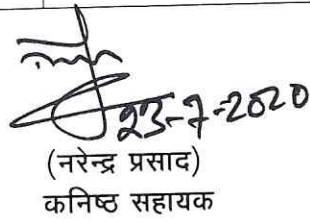 23-7-2020
(नरेन्द्र प्रसाद)
कनिष्ठ सहायक